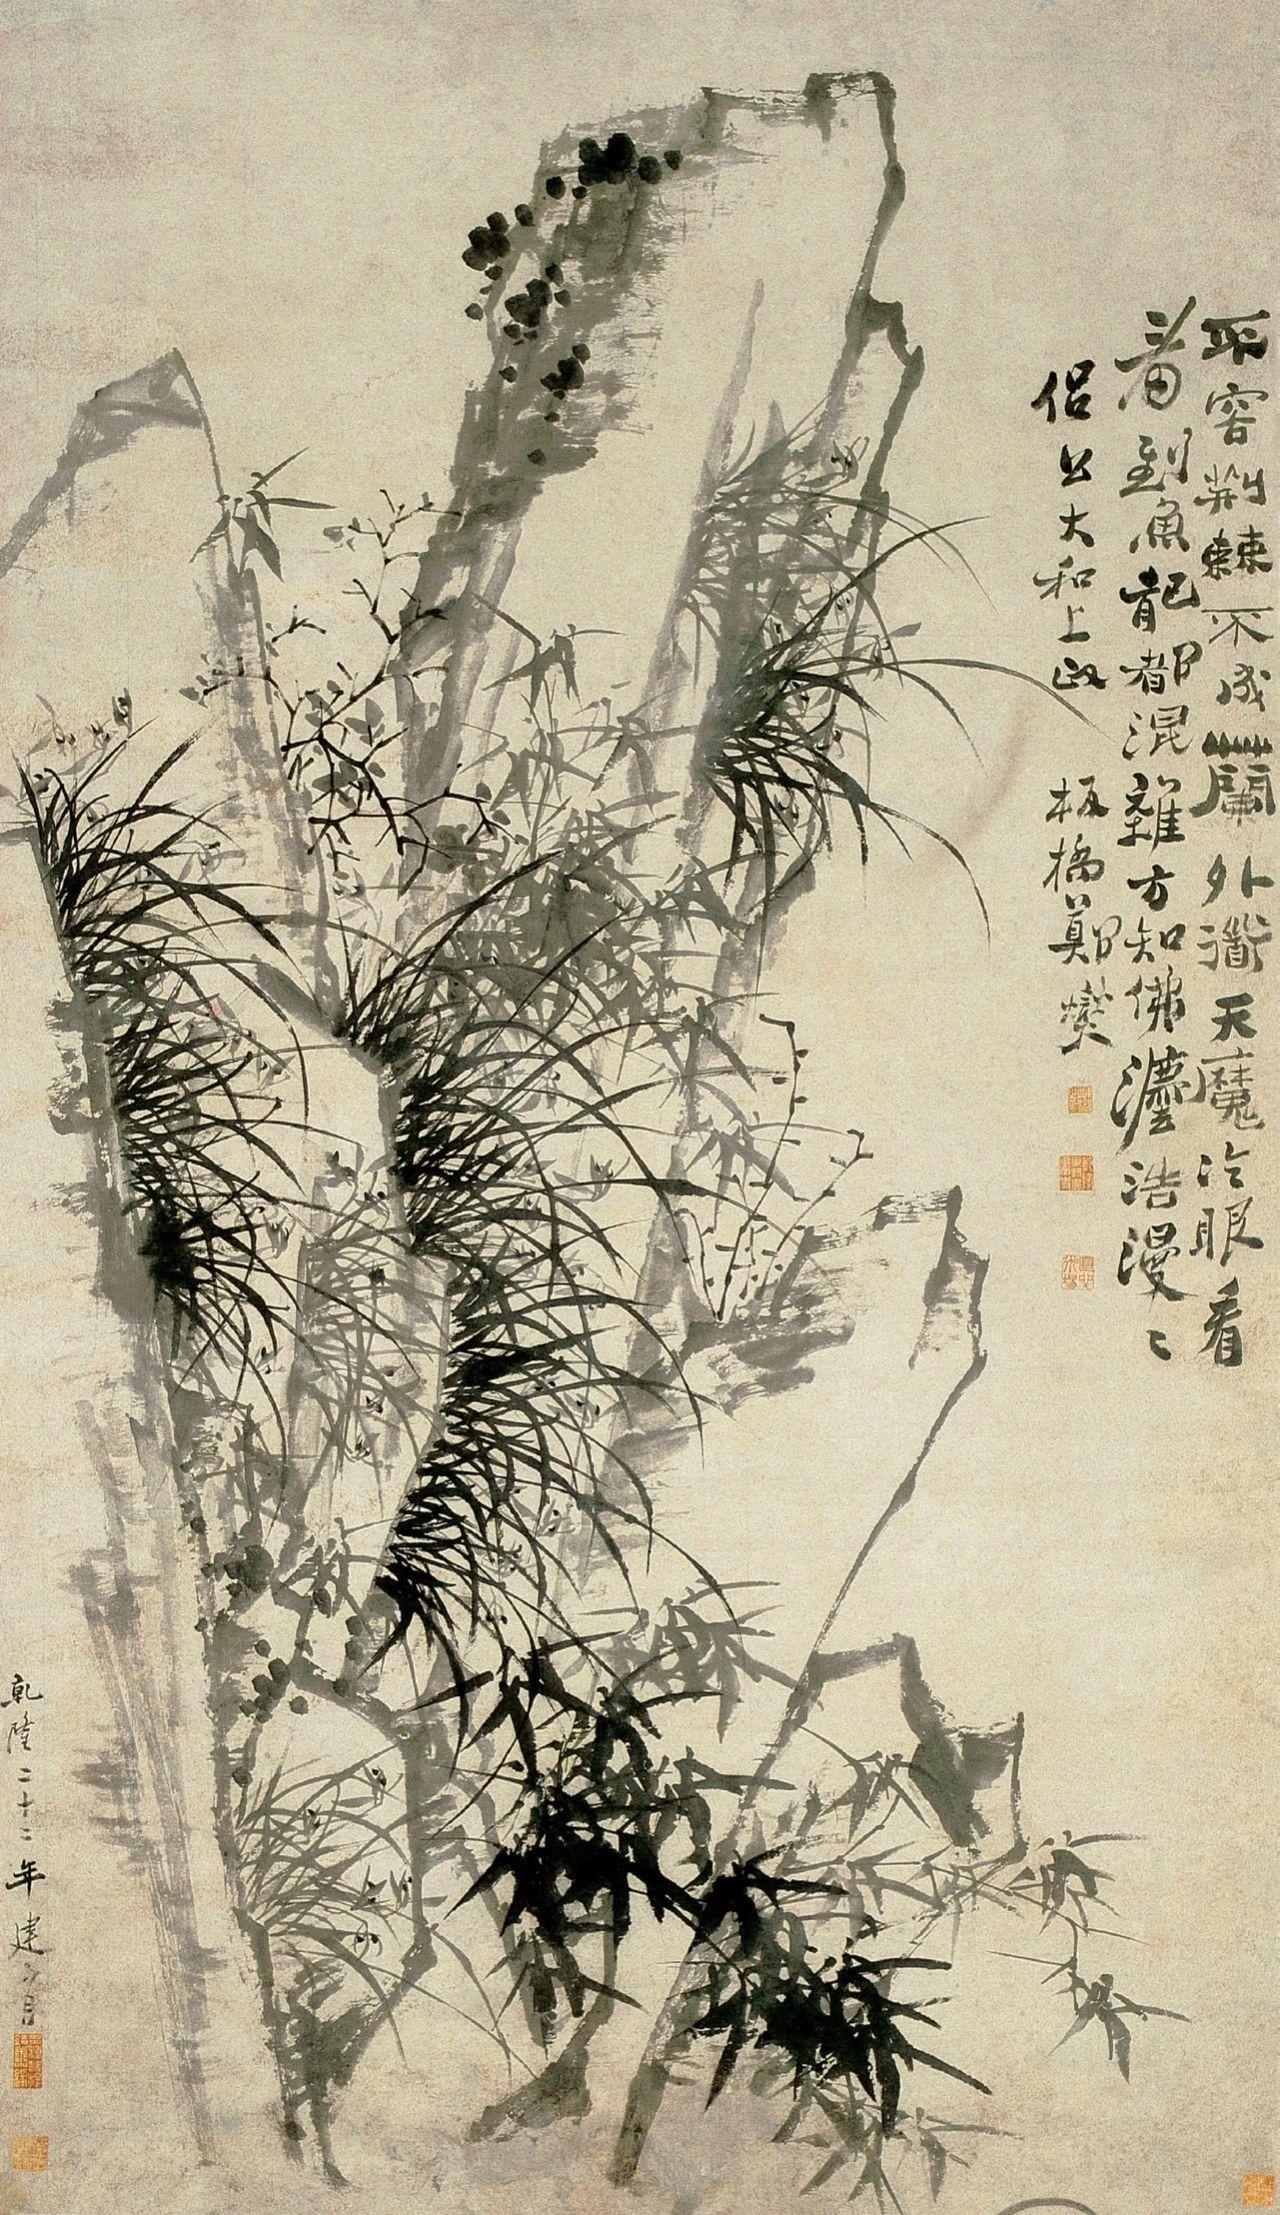 不容荆棘不成蘭外道天魔冷眼看
看到魚龍都混雜方知佛灋浩漫〻
侶公大和上政
板橋鄭燮
乾隆二十二年建子月